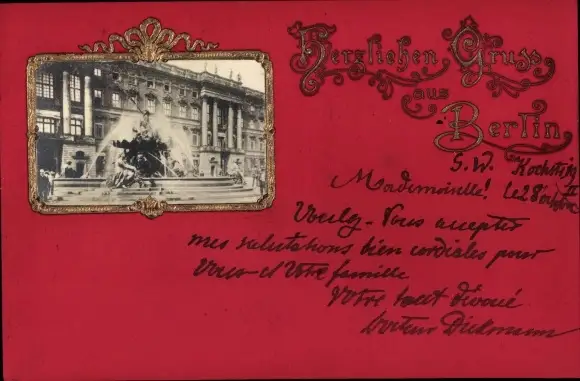 Herzlichen Gruss
aus
Berlin
S. W. Kochstr.
Mademoiselle! Le 28
Veuillez-Vous accepter
mes salutations bien cordiales pour
Vous et Votre famille
Votre tout dévoué
Docteur Diekmann